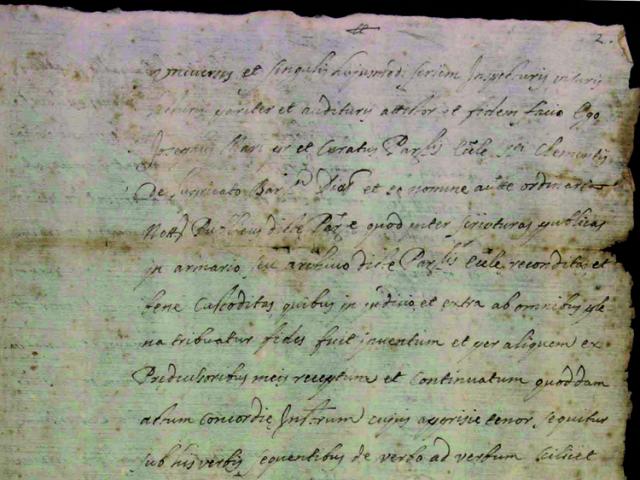 2.
Universis et singulis hujusmodi seriem Inspecturis visuris
pariter et audituris attestor et fidem facio Ego
Josephus Pbr et Curatus Parlis Eccle Sti Clementis
De et eo nomine aucte ordinaria
Nott Publicus dicte Par quod inter scripturas publicas
in armario, seu archivo dicte Parlis Eccle reconditas et
bene Custoditas quibus in judicio, et extra ab omnibus ple
na tribuatur fides fuit inventum et per aliquem ex
Predecessoribus meis receptum et Continuatum quoddam
actum Concordie Instrum cujus apprisie tenor sequitur
sub his verbis sequentibus de verbo ad verbum scilicet